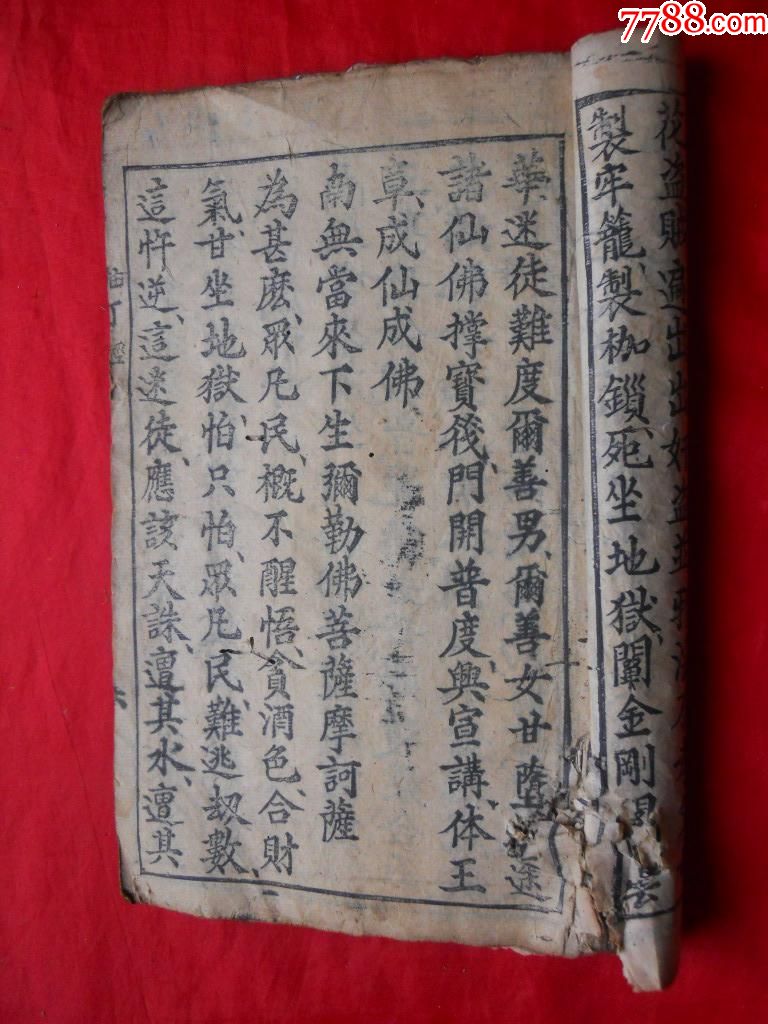 7788.com
製牢籠、製枷鎖、死坐地獄、闡金剛
華、迷徒難度爾善男、爾善女甘墮途
諸仙佛撐寶筏、門開普度、興宣講、体王
章、成仙成佛
南無當來下生彌勒佛菩薩摩訶薩
為甚麽、眾凡民、概不醒悟、貪酒色、合財
氣、甘坐地獄、怕只怕、眾凡民、難逃刼數、
這忤逆、這迷徒、應該天誅、遭其水、遭其
經
六